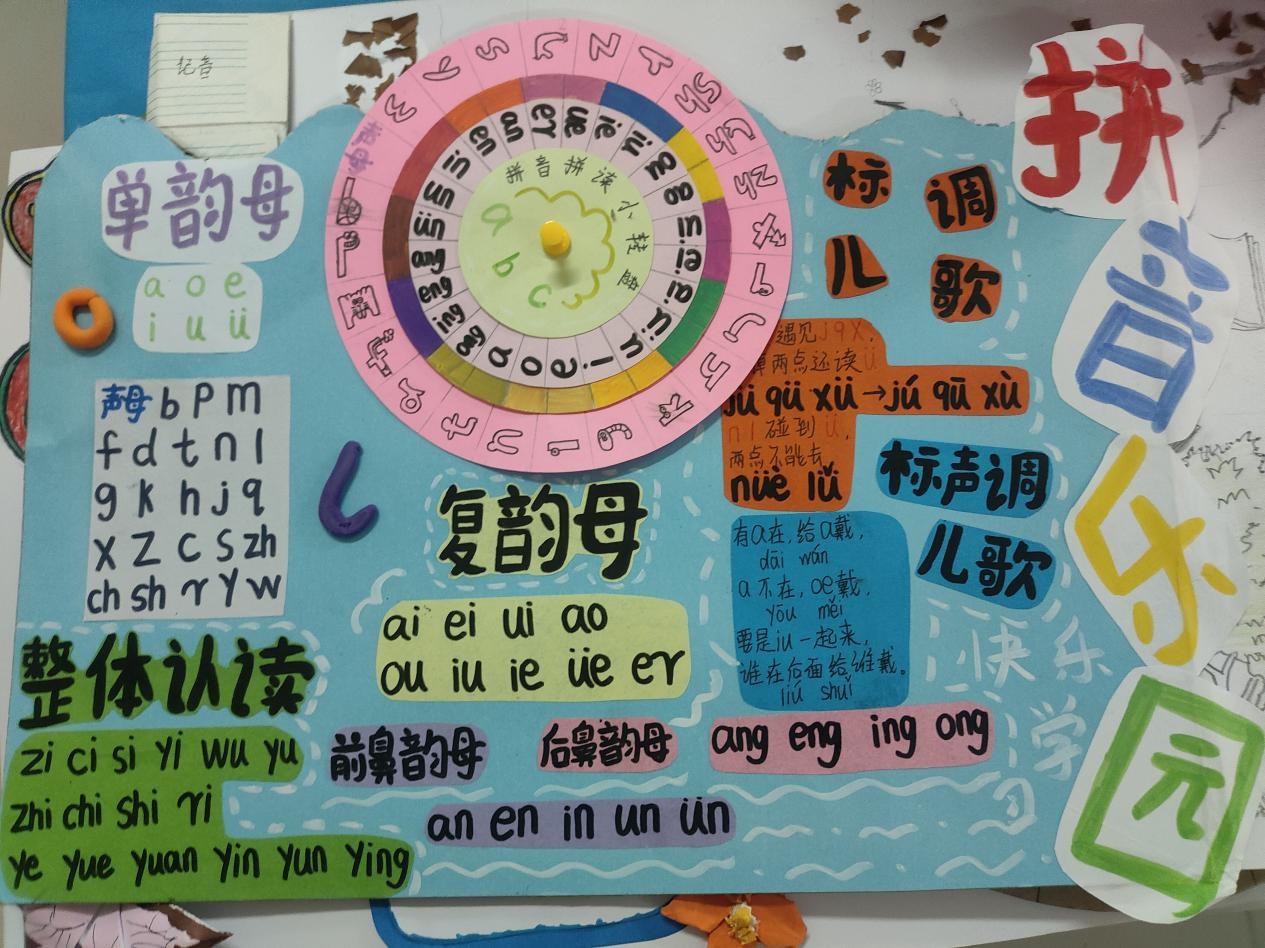 纪音
拼音乐园
单韵母
a o e
i u ü
声母 b p m
f d t n l
g k h j q
x z c s zh
ch sh r y w
整体认读
zi ci si yi wu yu
zhi chi shi ri
ye yue yuan yin yun ying
拼音拼读小转盘
a
b
c
声母
复韵母
ai ei ui ao
ou iu ie üe er
前鼻韵母
an en in un ün
后鼻韵母
ang eng ing ong
标调
儿歌
遇见j q x,
两点还读ü
jü qü xü→jú qū xù
n l 碰到ü,
两点不能去
nüè lǚ
标声调
儿歌
有a在,给a戴,
dāi wán
a不在,oe戴,
yōu měi
要是iu一起来,
谁在后面给谁戴。
liú shuǐ
快乐
学